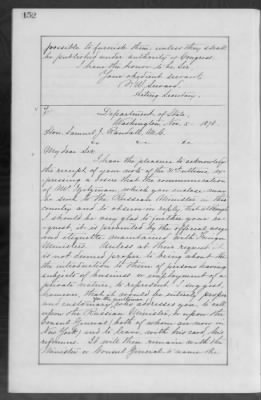 152
possible to furnish them, unless they shall
be published under authority of Congress.
I have the honor to be, Sir,
Your obedient servant,
F. W. Seward,
Acting Secretary.
Department of State,
Washington, Nov. 5 1878.
Hon. Samuel J. Randall, M.C.
My dear Sir:
I have the pleasure to acknowledge
the receipt of your note of the ultimo ex-
pressing a desire that the communication
of Mr. which you enclose may
be sent to the Russian Minister in this
country and to observe in reply, that although
I should be very glad to further your re-
quest, it is prevented by the official usage
and etiquette maintained with Foreign
Ministers. Unless at their request it
is not deemed proper to bring about
the introduction to them of persons having
subjects of business or employment of a
private nature, to represent. I suggest,
however, that it would be entirely proper
and customary for the gentleman who addresses you, to call
upon the Russian Minister, or upon the
Consul General, (both of whom are now in
New York) and to leave with his card, this
reference. It will then remain with the
Minister or Consul General to name the